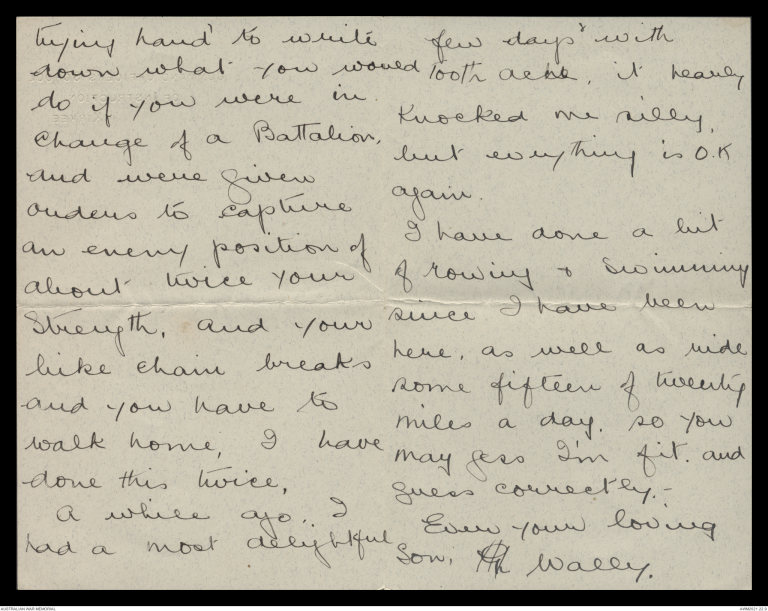 trying hard to write
down what you would
do if you were in
charge of a Battalion,
and were given
orders to capture
an enemy position of
about twice your
strength, and your
bike chain breaks
and you have to
walk home, I have
done this twice,
A while ago, I
had a most delightful
few days with
tooth ache, it nearly
Knocked me silly,
but everything is O.K
again.
I have done a bit
of rowing & swimming
since I have been
here, as well as ride
some fifteen of twenty
miles a day, so you
may gess I'm fit. and
guess correctly.-
Ever your loving
Son, Wally.
AUSTRALIAN WAR MEMORIAL